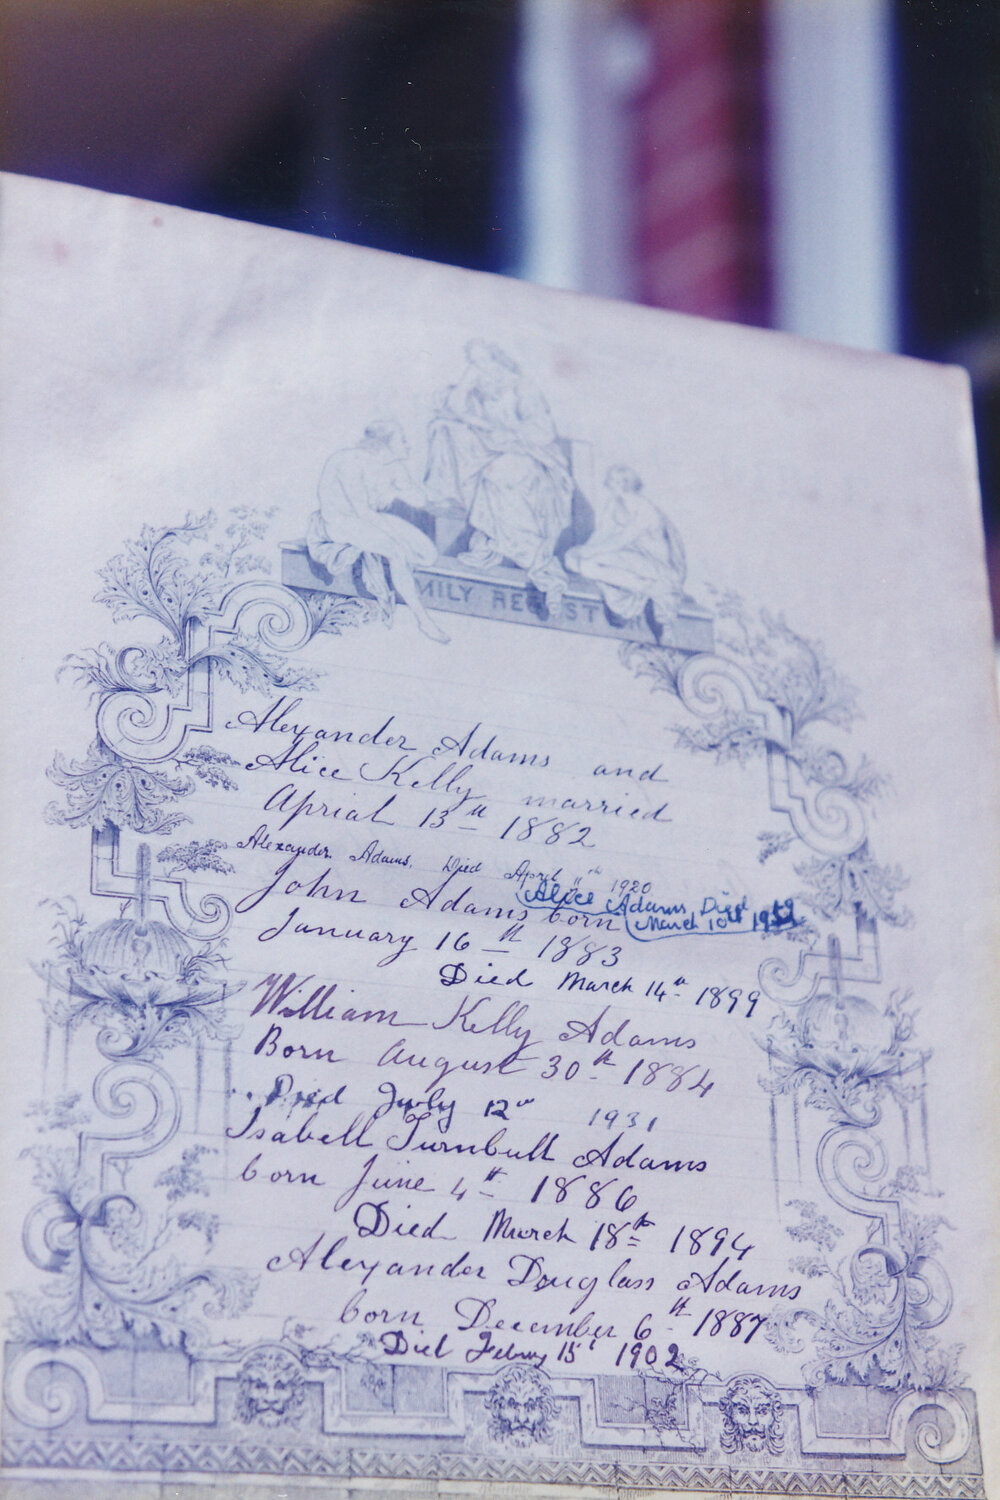 MILY REGISTER
Alexander Adams and
Alice Kelly married
Aprial 13th 1882
Alexander Adams. Died April 11th 1920
Alice Adams Died
March 10th
John Adams born
January 16th 1883
Died March 14th 1899
William Kelly Adams
Born August 30th 1884
Died July 12th 1931
Isabell Turnbull Adams
born June 4th 1886
Died March 18th 1894
Alexander Douglass Adams
born December 6th 1887
Died Febury 15th 1902